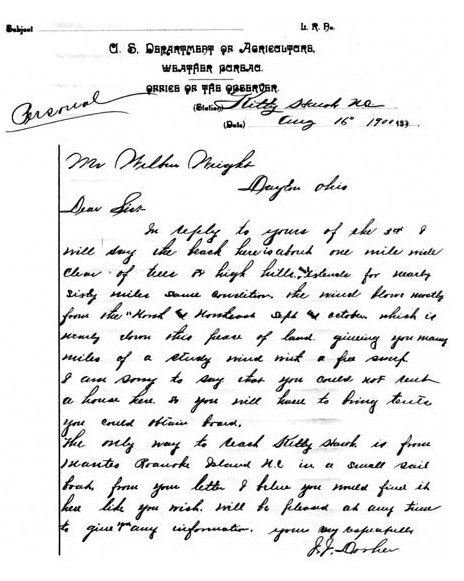 Subject L. R. No.
U. S. DEPARTMENT OF AGRICULTURE,
WEATHER BUREAU.
OFFICE OF THE OBSERVER.
Personal
(Station) Kitty Hawk N.C
(Date) Aug 16" 1900 189
Mr Wilbur Wright
Dayton Ohio
Dear Sir
In reply to yours of the 3rd I
will say the beach here is about one mile wide
clear of trees or high hills & extends for nearly
sixty miles same condition. the wind blows mostly
from the North & Northeast Sept & october which is
nearly down this peace of land. giveing you many
miles of a study wind with a free sweep
I am sorry to say that you could not rent
a house here. so you will have to bring tents
you could obtain board.
the only way to reach Kitty Hawk is from
Manteo Roanoke Island N.C in a small sail
boat. from your letter I believe you would find it
here like you wish. will be pleased at any time
to give you any information. yours very respectfully
J.J. Dosher